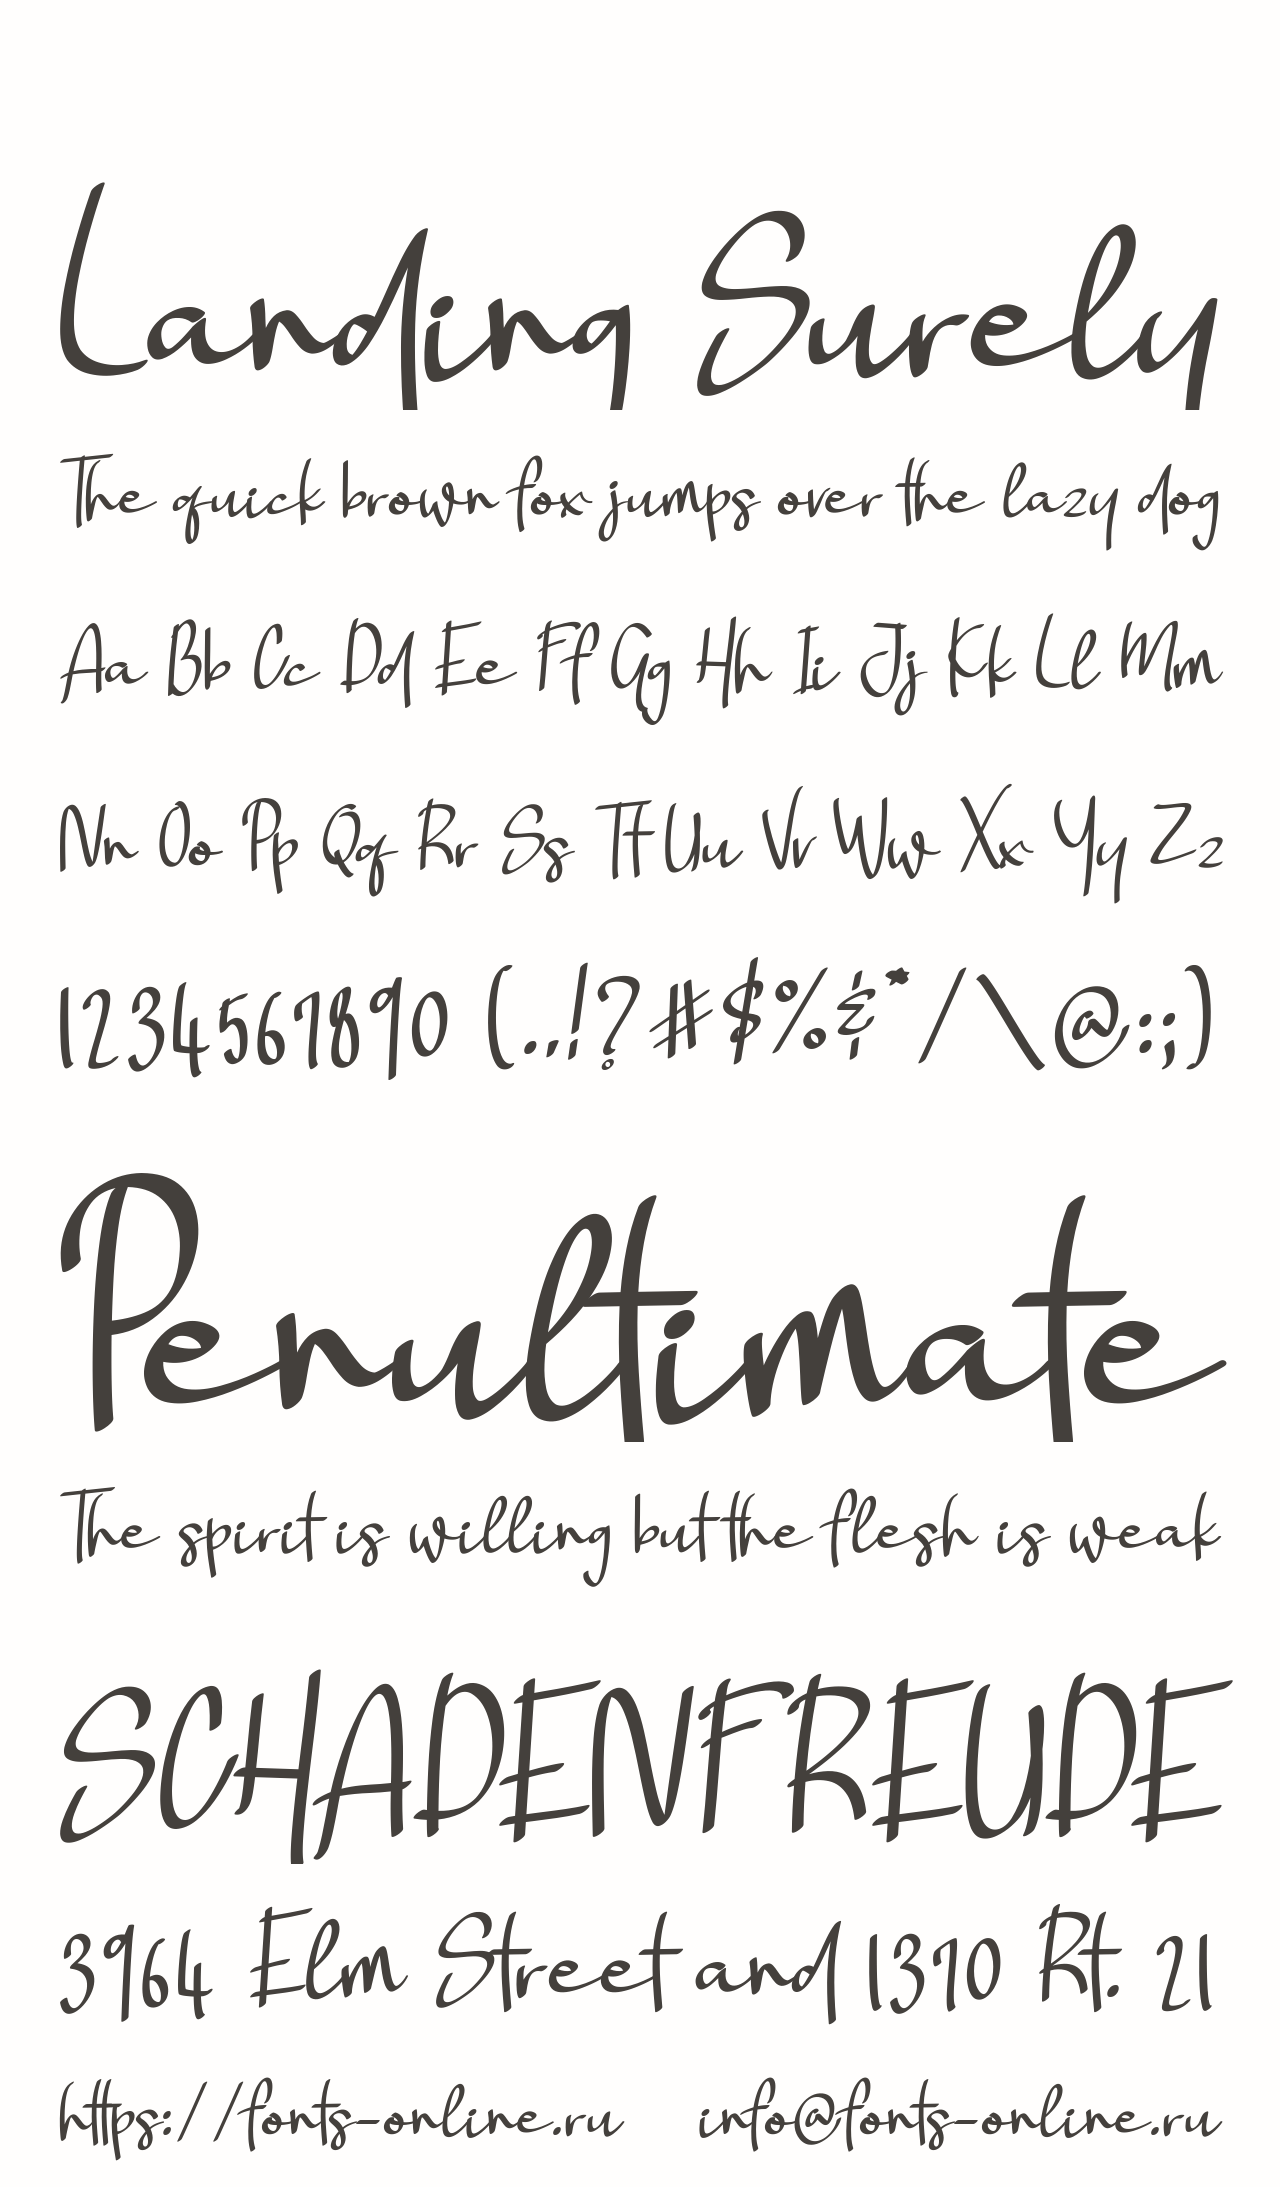 Landing Surely
The quick brown fox jumps over the lazy dog
Aa Bb Cc Dd Ee Ff Gg Hh Ii Jj Kk Ll Mm
Nn Oo Pp Qq Rr Ss Tt Uu Vv Ww Xx Yy Zz
1234567890 (.,!?#$%&*/\@:;)
Penultimate
The spirit is willing but the flesh is weak
SCHADENFREUDE
3964 Elm Street and 1370 Rt. 21
https://fonts-online.ru info@fonts-online.ru